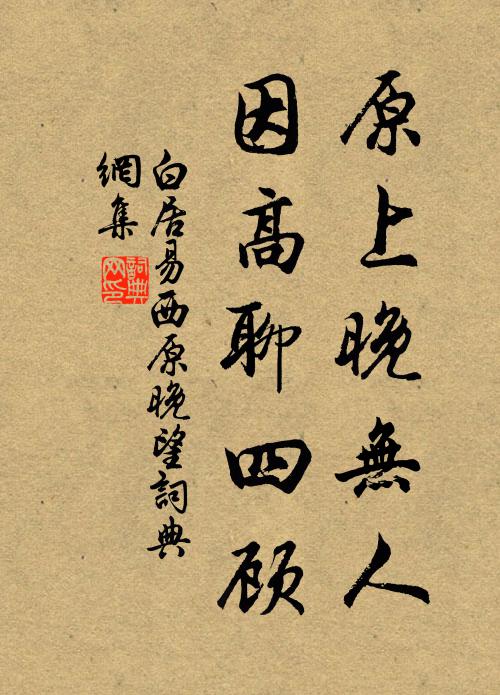 原上晚無人
因高聊四顾
白居易西原晚望詞典
網集
詞典
网印